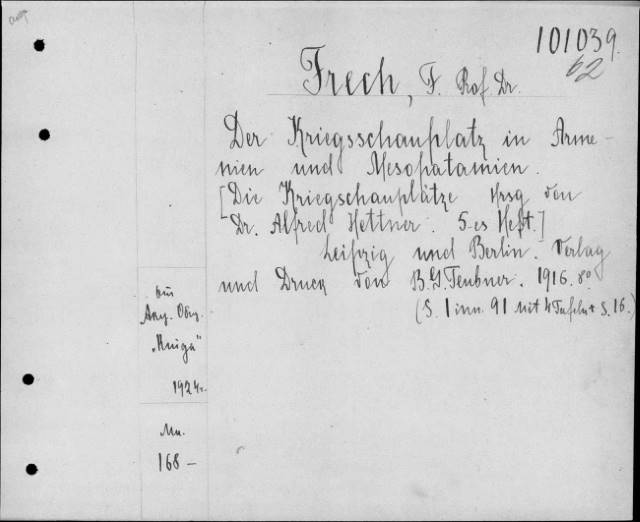 101039.
62
Frech, F. Prof. Dr.
Der Kriegsschauplatz in Arme-
nien und Mesopatamien.
[Die Kriegschauplätze Hrsg von
Dr. Alfred Hettner. 5-es Heft.]
Leipzig und Berlin. Verlag
und Druck von B. G. Teubner. 1916. 8º
(S. 1 inn. 91 mit 4 Tafeln + S. 16.)
"Книга"
1924г.
168 –